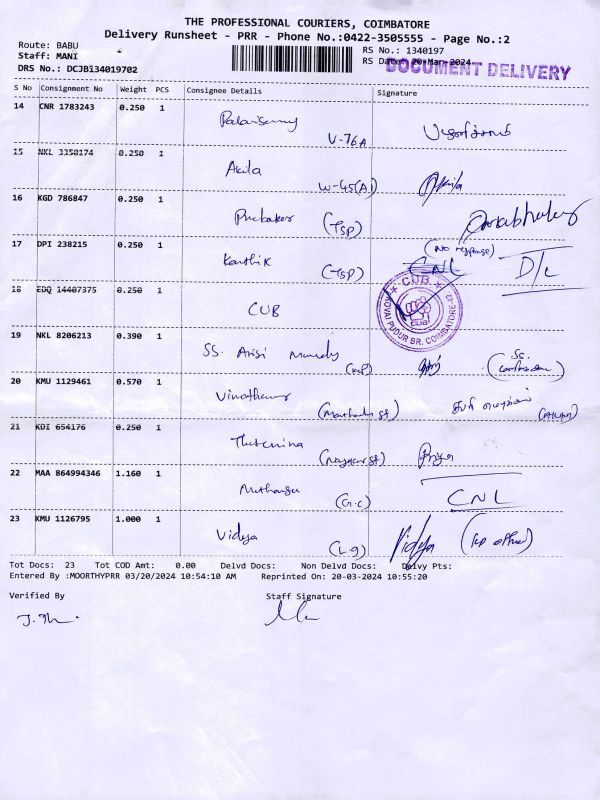 THE PROFESSIONAL COURIERS, COIMBATORE
Delivery Runsheet - PRR - Phone No.:0422-3505555 - Page No.:2
Route: BABU
Staff: MANI
DRS No.: DCJB134019702
RS No.: 1340197
RS Date: 20-Mar-2024
DOCUMENT DELIVERY
S No Consignment No Weight PCS Consignee Details Signature
14 CNR 1783243 0.250 1
V-76A
15 NKL 3350174 0.250 1 Akila
W-45(A) Akila
16 KGD 786847 0.250 1 Prebakar (TSP) Prabhakar
17 DPI 238215 0.250 1 Karthik (TSP) (No response) CNL D/L
18 EDQ 14407375 0.250 1 CUB
CUB
KOVAI PUDUR BR. COIMBATORE-42
19 NKL 8206213 0.390 1 SS. Arisi Mandy
20 KMU 1129461 0.570 1
21 KDI 654176 0.250 1 Priya
22 MAA 864994346 1.160 1 (G.C) CNL
23 KMU 1126795 1.000 1 Vidya (L-9) Vidya
Tot Docs: 23 Tot COD Amt: 0.00 Delvd Docs: Non Delvd Docs: Delvy Pts:
Entered By :MOORTHYPRR 03/20/2024 10:54:10 AM Reprinted On: 20-03-2024 10:55:20
Verified By Staff Signature